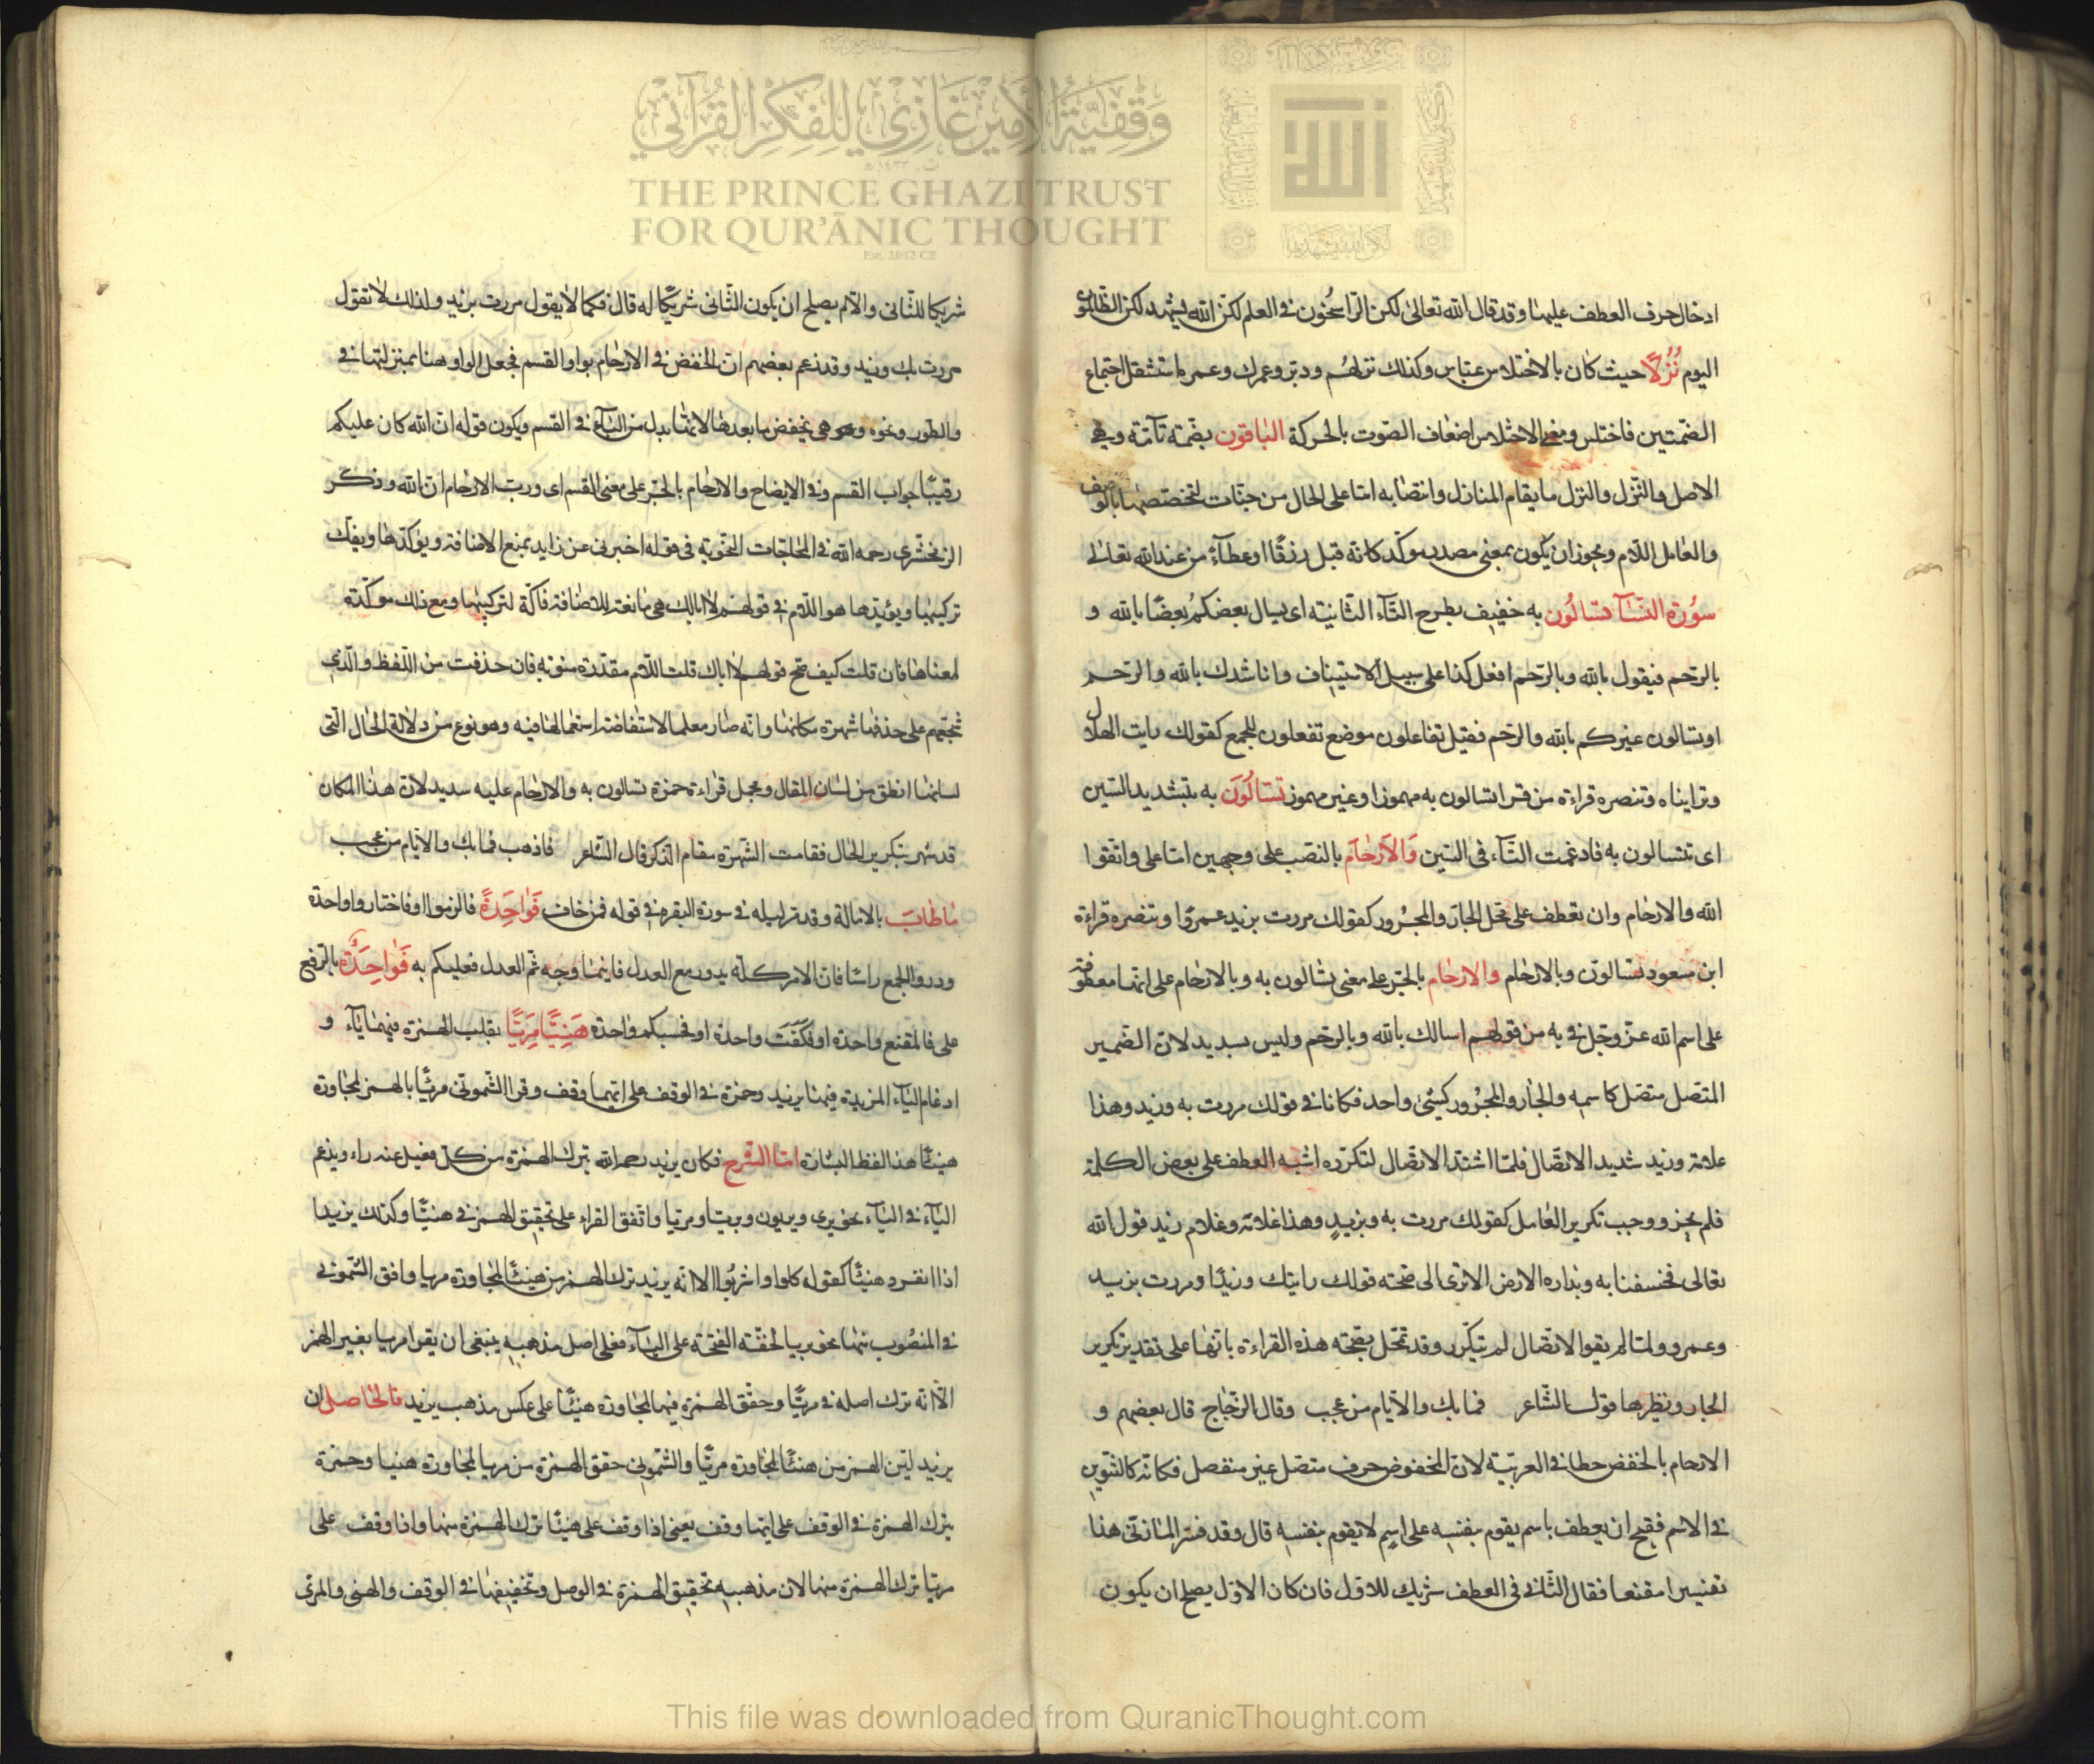 وَقْفِيَّةُ الأَمِيرِ غَازِي لِلْفِكْرِ القُرْآنِي
THE PRINCE GHAZI TRUST
FOR QUR'ĀNIC THOUGHT
Est. 2012 CE
الله
ادخال حرف العطف عليها وقد قال الله تعالى لكن الراسخون في العلم لكن الله يشهد لكن الظالمون
اليوم نُزُلًا حيث كان بالاختلاس عباس وكذلك نزلهم ودبر وعمرك وعمر ما استثقل اجتماع
الضمتين فاختلس ومعنى الاختلاس اضعاف الصوت بالحركة الباقون بضمة تآمة وهي
الاصل والنزل والنزل ما يقام المنازل وانتصابه اما على الحال من جنات لتخصصها بالوصف
والعامل اللام ويجوز ان يكون بمعنى مصدر موكد كانه قيل رزقًا او عطآءً من عند الله تعالى
سورة النسآ تسالون به خفيف بطرح التآء الثانية اى يسال بعضكم بعضًا بالله و
بالرحم فيقول بالله وبالرحم افعل كذا على سبيل الاستيناف واناشدك بالله والرحم
او تسالون غيركم بالله والرحم فقيل تفاعلون موضع تفعلون للجمع كقولك رايت الهلال
وترايناه وتنصره قراءة من قرا تسالون به مهموزا وغير مهموز تَسّالُونَ به بتشديد السين
اى تتسالون به فادغمت التآء فى السين وَالاَرْحامَ بالنصب على وجهين اما على واتقوا
الله والارحام وان تعطف على محل الجار والمجرور كقولك مررت بزيد وعمروا وتنصره قراءة
ابن مسعود تسالون وبالارحام والارحام بالجر على معنى تسالون به وبالارحام على انها معطوفة
على اسم الله عز وجل فى به من قولهم اسالك بالله وبالرحم وليس بسديد لان الضمير
المتصل متصل كاسمه والجار والمجرور كشئ واحد فكانا فى قولك مررت به وزيد وهذا
غلامه وزيد شديد الاتصال فلما اشتد الاتصال لتكرره اشبه العطف على بعض الكلمة
فلم يجز ووجب تكرير العامل كقولك مررت به وبزيدٍ وهذا غلامه وغلام زيد قول الله
تعالى فخسفنا به وبداره الارض الا ترى الى صحته قولك رايتك وزيدًا ومررت بزيد
وعمرو ولما لم يقو الاتصال لم يتكرر وقد تمحل بصحته هذه القراءة بانها على تقدير تكرير
الجار ونظيرها قول الشاعر فما بك والايام من عجب وقال الزجاج قال بعضهم و
الارحام بالخفض خطا فى العربية لان المخفوض حرف متصل غير منفصل فكانه كالتنوين
فى الاسم فقبح ان يعطف باسم يقوم بنفسه على اسم لا يقوم بنفسه قال وقد فسر المازنى هذا
تفسيرا مقنعا فقال الثانى فى العطف شريك للاول فان كان الاول يصلح ان يكون
شريكا للثانى والا لم يصلح ان يكون الثانى شريكًا له قال فكما لا يقول مررت بزيد وك لذلك لا تقول
مررت بك وزيد وقد زعم بعضهم ان الخفض فى الارحام بواو القسم فجعل الواو هنا بمنزلتها فى
والطور ونحوه وهى تخفض ما بعدها لانها بدل من البآء فى القسم ويكون قوله ان الله كان عليكم
رقيبًا جواب القسم وفى الايضاح والارحام بالجر على معنى القسم اى ورب الارحام ان الله وذكر
الزمخشرى رحمه الله فى المحاجات النحوية فى قوله اخبرنى عن زايد يمنع الاضافة ويوكدها ويفك
تركيبها ويؤيدها هو اللام فى قولهم لا ابالك هى مانعة للاضافة فاكة لتركيبها ومع ذلك موكدة
لمعناها فان قلت كيف صح قولهم لا اباك قلت اللام مقدرة منوية فان حذفت من اللفظ والذى
شجعهم على حذفها شهرة مكانها وانه صار معلما لاستفاضة استعمالها فيه وهو نوع من دلالة الحال التى
لسانها انطق من لسان المقال ومحمل قراءة حمزة تسالون به والارحام عليه سديد لان هذا المكان
قد شهر بتكرير الحال فقامت الشهرة مقام الذكر قال الشاعر فاذهب فما بك والايام من عجب
ماطابَ بالامالة وقد مر اصله فى سورة البقرة فى قوله فمن خاف فَواحِدَةً فالزموا او فاختاروا واحدة
وذروا الجمع راسًا فان الامر كله يدور مع العدل فاينما وجه ثم العدل فعليكم به فَواحِدَةٌ بالرفع
على فالمقنع واحدة او فكفت واحدة او فحسبكم واحدة هَنِيًّا مَرِيًّا بقلب الهمزة فيهما يآء و
ادغام اليآء المزيدة فيهما يزيد وحمزة فى الوقف على ايهما وقف وقرا الشمونى مرئًا بالهمز لمجاورة
هنيئًا هذا لفظ البشارة اما الشرح فكان يزيد رحمه الله بترك الهمزة من كل فعيل عنه راء ويدغم
اليآء فى اليآء نحو برى وبريون وبريا ومريا واتفق القراء على تحقيق الهمز فى هنيئًا وكذلك يزيد
اذا انفرد هنيئًا كقوله كلوا واشربوا الا انه يزيد ترك الهمز من هنيئًا لمجاورة مريا وافق الشمونى
فى المنصوب منها نحو بريا لخفة الفتحة على اليآء فعلى اصل مذهبه ينبغى ان يقرا مريا بغير الهمز
الا انه ترك اصله فى مريًّا وحقق الهمزة فيها لمجاورة هنيئًا على عكس مذهب يزيد فالحاصل ان
يزيد لين الهمز من هنيئًا لمجاورة مريًّا والشمونى حقق الهمزة من مريا لمجاورة هنيا وحمزة
بترك الهمزة فى الوقف على ايهما وقف يعنى اذا وقف على هنيئًا ترك الهمزة منها واذا وقف على
مريًا ترك الهمزة منها لان مذهبه تحقيق الهمزة فى الوصل وتخفيفها فى الوقف والهنى والمرى
This file was downloaded from QuranicThought.com